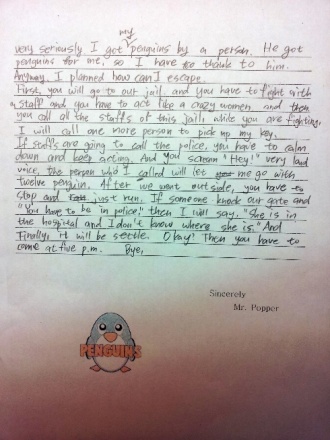 my
very seriously I got penguins by a person. He got
penguins for me, so I have to thank to him.
Anyway, I planned how can I escape.
First, you will go to our jail, and you have to fight with
a staff and you have to act like a crazy women and then
you call all the staffs of this jail. While you are fighting,
I will call one more person to pick up my key.
If staffs are going to call the police, you have to calm
down and keep acting. And you scream "Hey!" very loud
voice, the person who I called will let me go with
twelve penguin. After we went outside, you have to
stop and just run. If someone knock our gate and
"You have to be in police," then I will say, "She is in
the hospital and I don't know where she is." And
Finally, it will be settle. Okay? Then you have to
come at five p.m. Bye,
Sincerely
Mr. Popper
PENGUINS